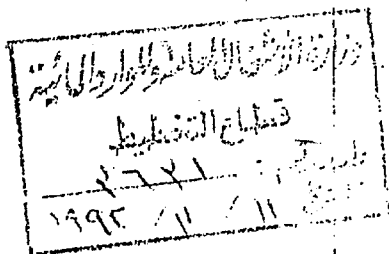 وزارة الأشغال العامة والموارد المائية
قطاع التخطيط
٢٦٢١
١١ / ١١ / ١٩٩٢